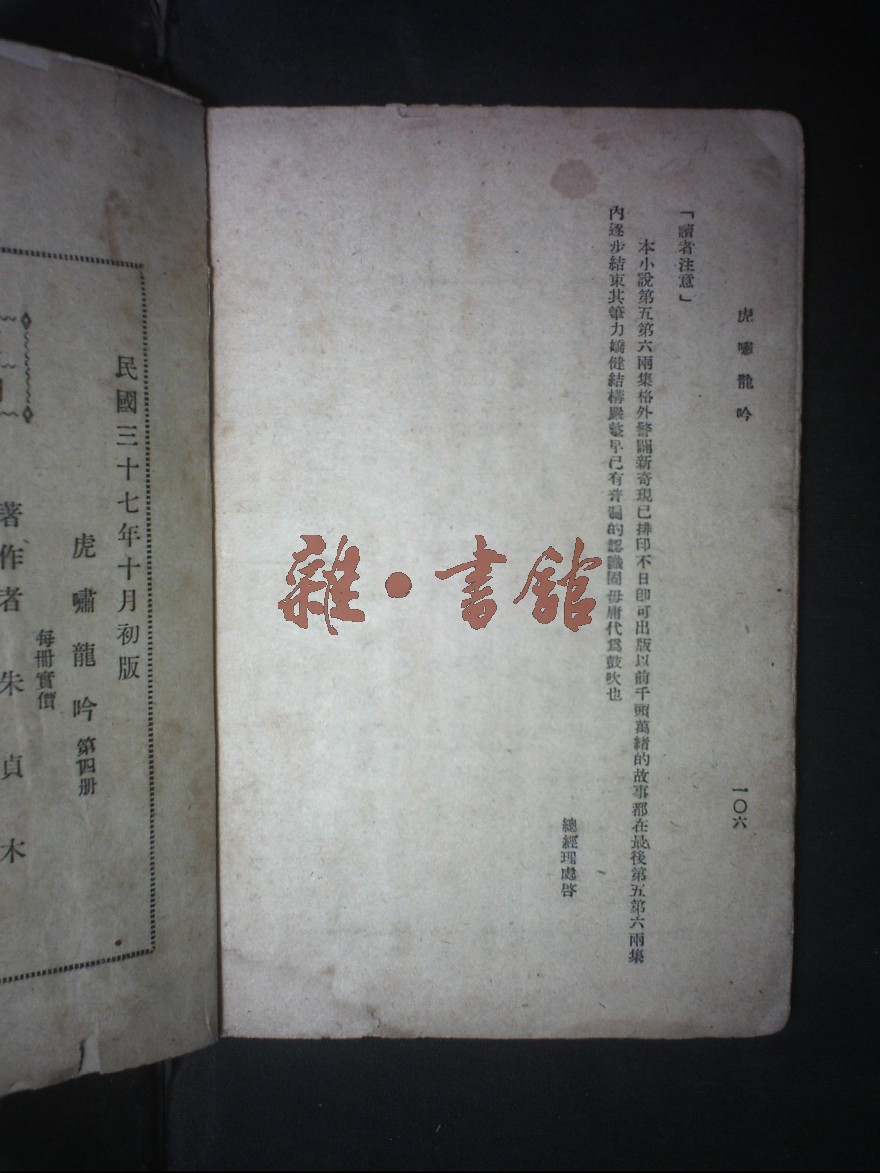 虎嘯龍吟
一〇六
「讀者注意」
本小說第五第六兩集格外警闢新奇現已排印不日卽可出版以前千頭萬緒的故事都在最後第五第六兩集
內逐步結束其筆力矯健結構嚴整早已有普遍的認識固毋庸代爲鼓吹也
總經理處啓
雜·書館
民國三十七年十月初版
虎嘯龍吟 第四册
每冊實價
著作者 朱貞木